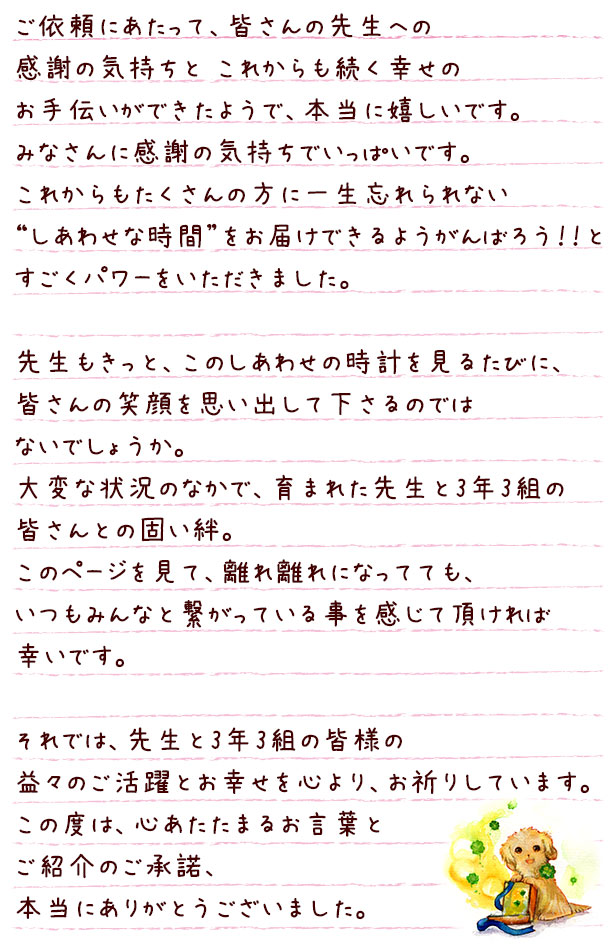 ご依頼にあたって、皆さんの先生への
感謝の気持ちと これからも続く幸せの
お手伝いができたようで、本当に嬉しいです。
みなさんに感謝の気持ちでいっぱいです。
これからもたくさんの方に一生忘れられない
“しあわせな時間”をお届けできるようがんばろう!!と
すごくパワーをいただきました。
先生もきっと、このしあわせの時計を見るたびに、
皆さんの笑顔を思い出して下さるのでは
ないでしょうか。
大変な状況のなかで、育まれた先生と3年3組の
皆さんとの固い絆。
このページを見て、離れ離れになってても、
いつもみんなと繋がっている事を感じて頂ければ
幸いです。
それでは、先生と3年3組の皆様の
益々のご活躍とお幸せを心より、お祈りしています。
この度は、心あたたまるお言葉と
ご紹介のご承諾、
本当にありがとうございました。